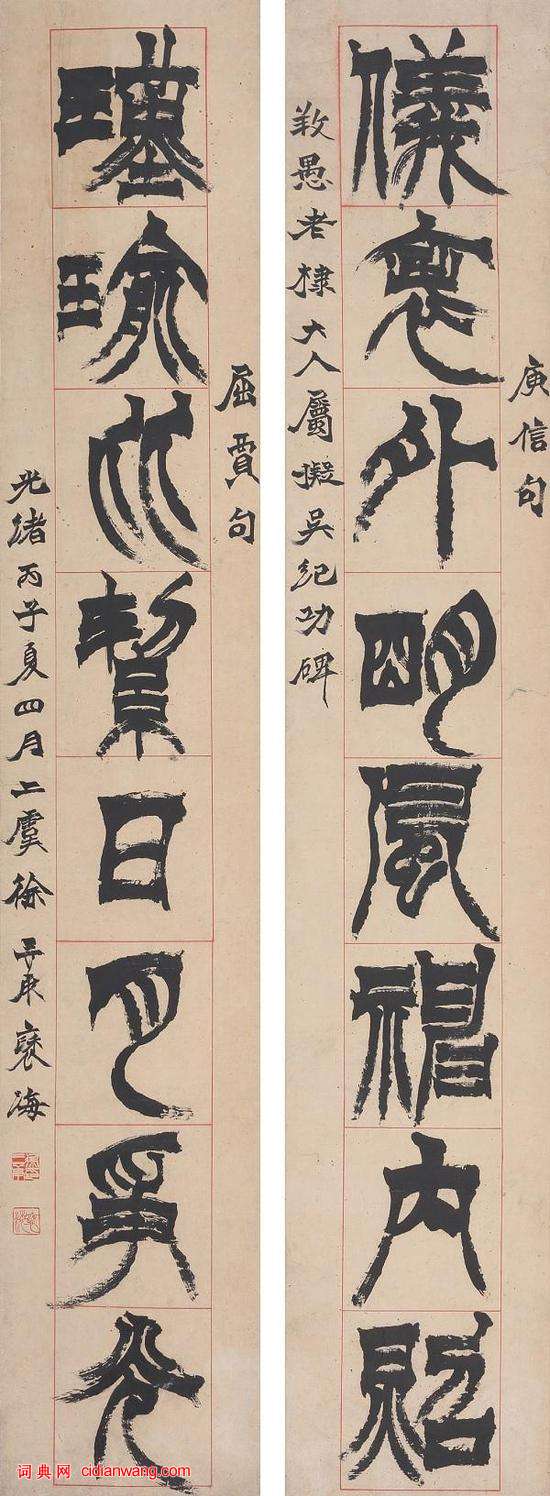 庾信句
儀表外明風神內照
愚老棣大人屬擬吳紀功碑
屈賈句
瑾瑜比質日月爭光
光緒丙子夏四月上虞徐三庚褎海
词典网 cidianwang.com